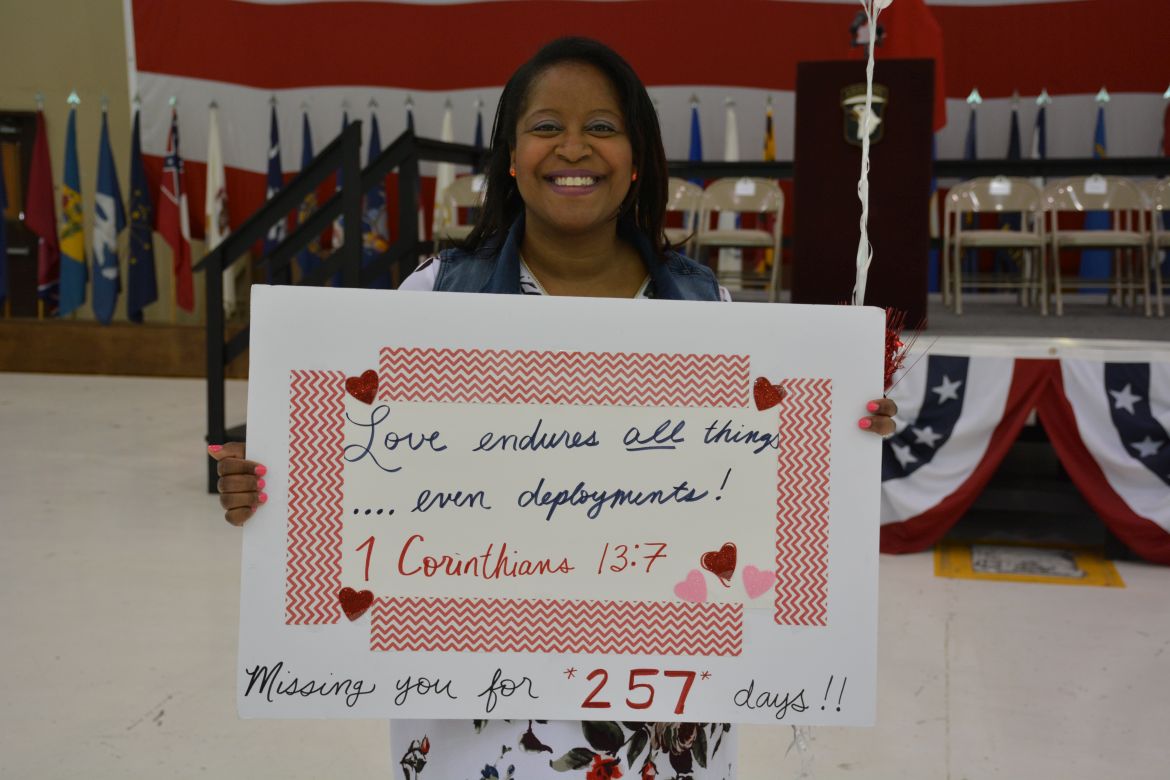 Love endures all things
.... even deployments!
1 Corinthians 13:7
Missing you for *257* days!!